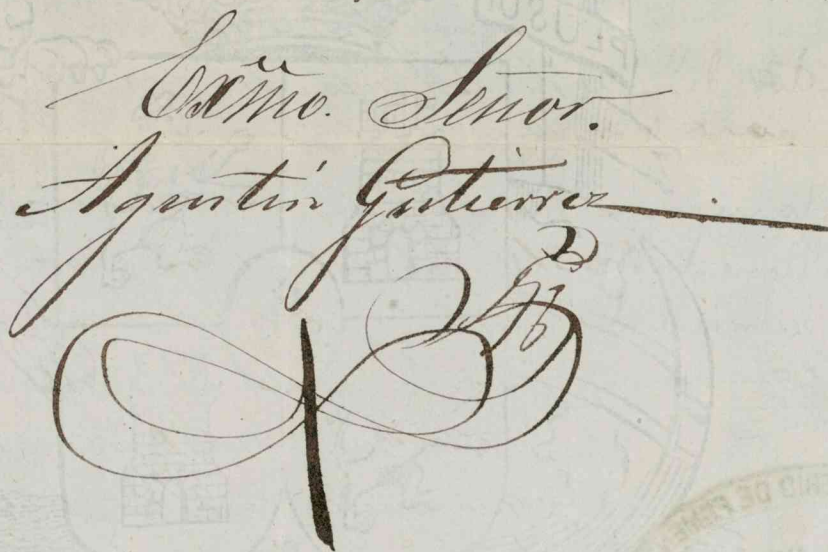 Exmo. Señor.
Agustín Gutierrez